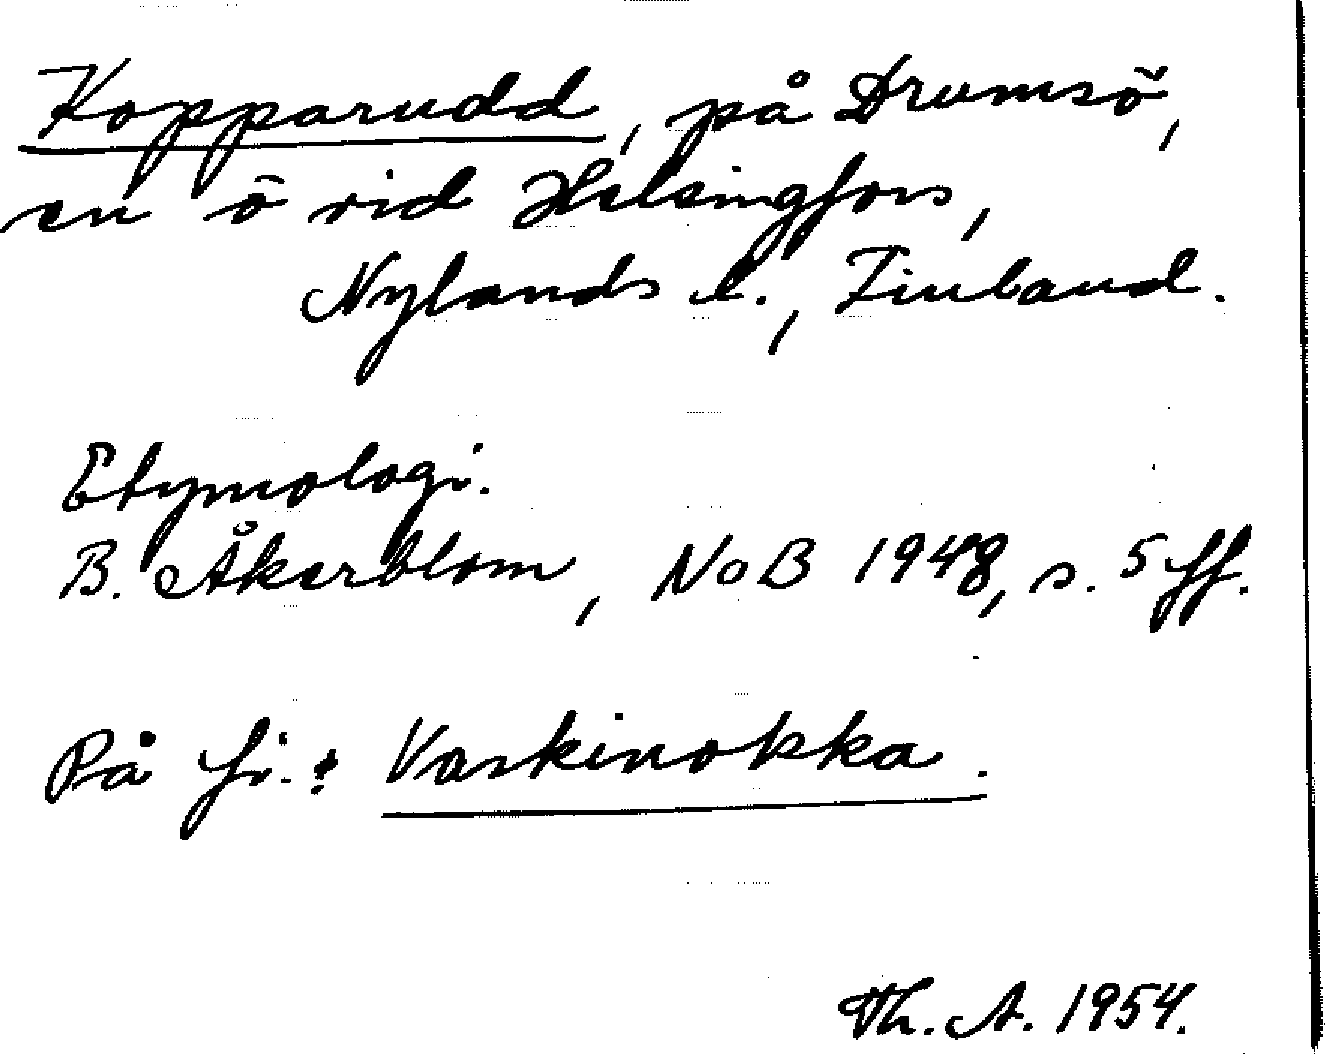 Kopparudd, på Drumsö,
en ö vid Helsingfors,
Nylands l., Finland.
Etymologi.
B. Åkerblom, NoB 1948, s. 5 ff.
På fi.: Vaskinokka.
Th. A. 1954.